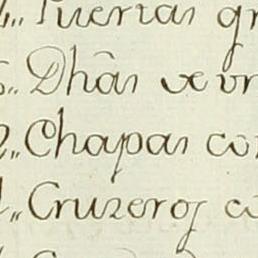 Puertas gr
Dhâs ve vn
2,, Chapas con
Cruzeros co